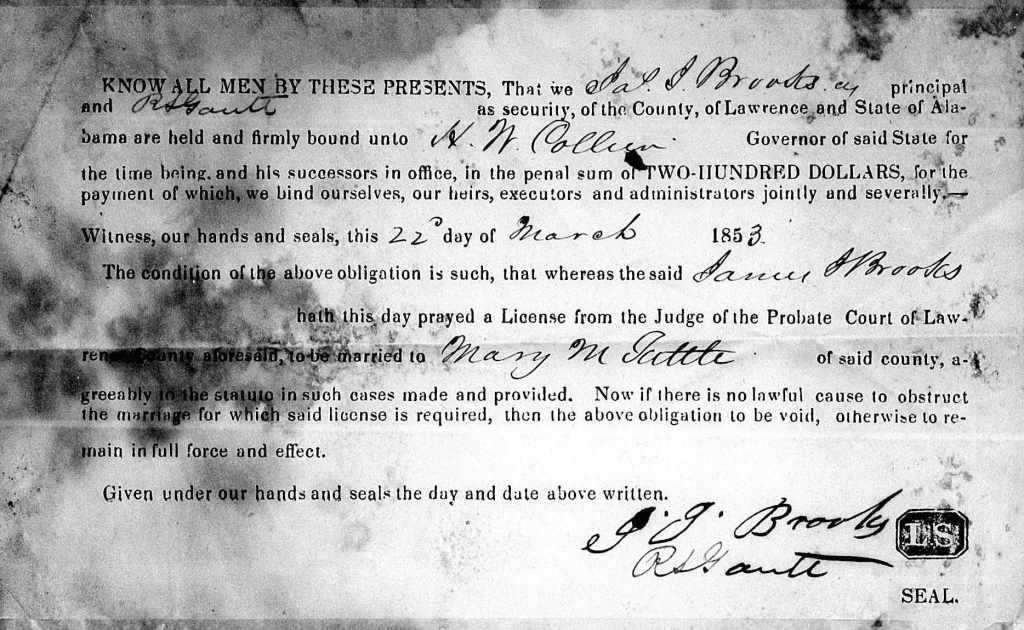 KNOW ALL MEN BY THESE PRESENTS, That we Jas. J Brooks as principal
and R S Gantt as security, of the County, of Lawrence and State of Ala-
bama are held and firmly bound unto H. W. Collier Governor of said State for
the time being, and his successors in office, in the penal sum of TWO-HUNDRED DOLLARS, for the
payment of which, we bind ourselves, our heirs, executors and administrators jointly and severally.—
Witness, our hands and seals, this 22d day of March 1853.
The condition of the above obligation is such, that whereas the said James J Brooks
hath this day prayed a License from the Judge of the Probate Court of Law-
rence County aforesaid, to be married to Mary M Tuttle of said county, a-
greeably to the statute in such cases made and provided. Now if there is no lawful cause to obstruct
the marriage for which said license is required, then the above obligation to be void, otherwise to re-
main in full force and effect.
Given under our hands and seals the day and date above written.
J. J. Brooks LS
R S Gantt
SEAL.